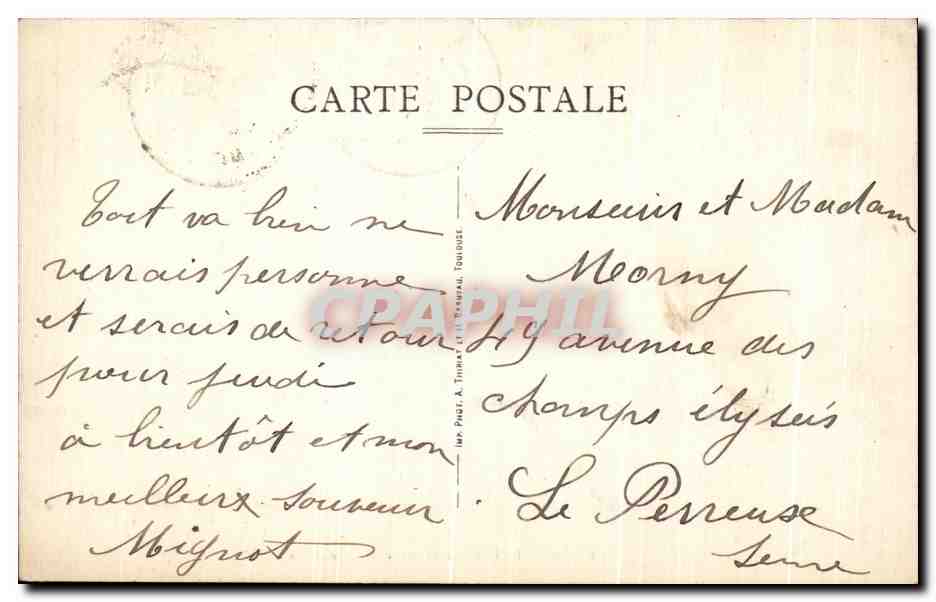 CARTE POSTALE
Tout va bien ne
verrais personne
et serais de retour
pour jeudi
à bientôt et mon
meilleurx souvenir
Mignot
IMP. PHOT. A. THIRIAT ET H. BASUYAU, TOULOUSE
Monsieur et Madam
Morny
49 avenue des
champs élyseés
Le Perreuse
Seine
CPAPHIL